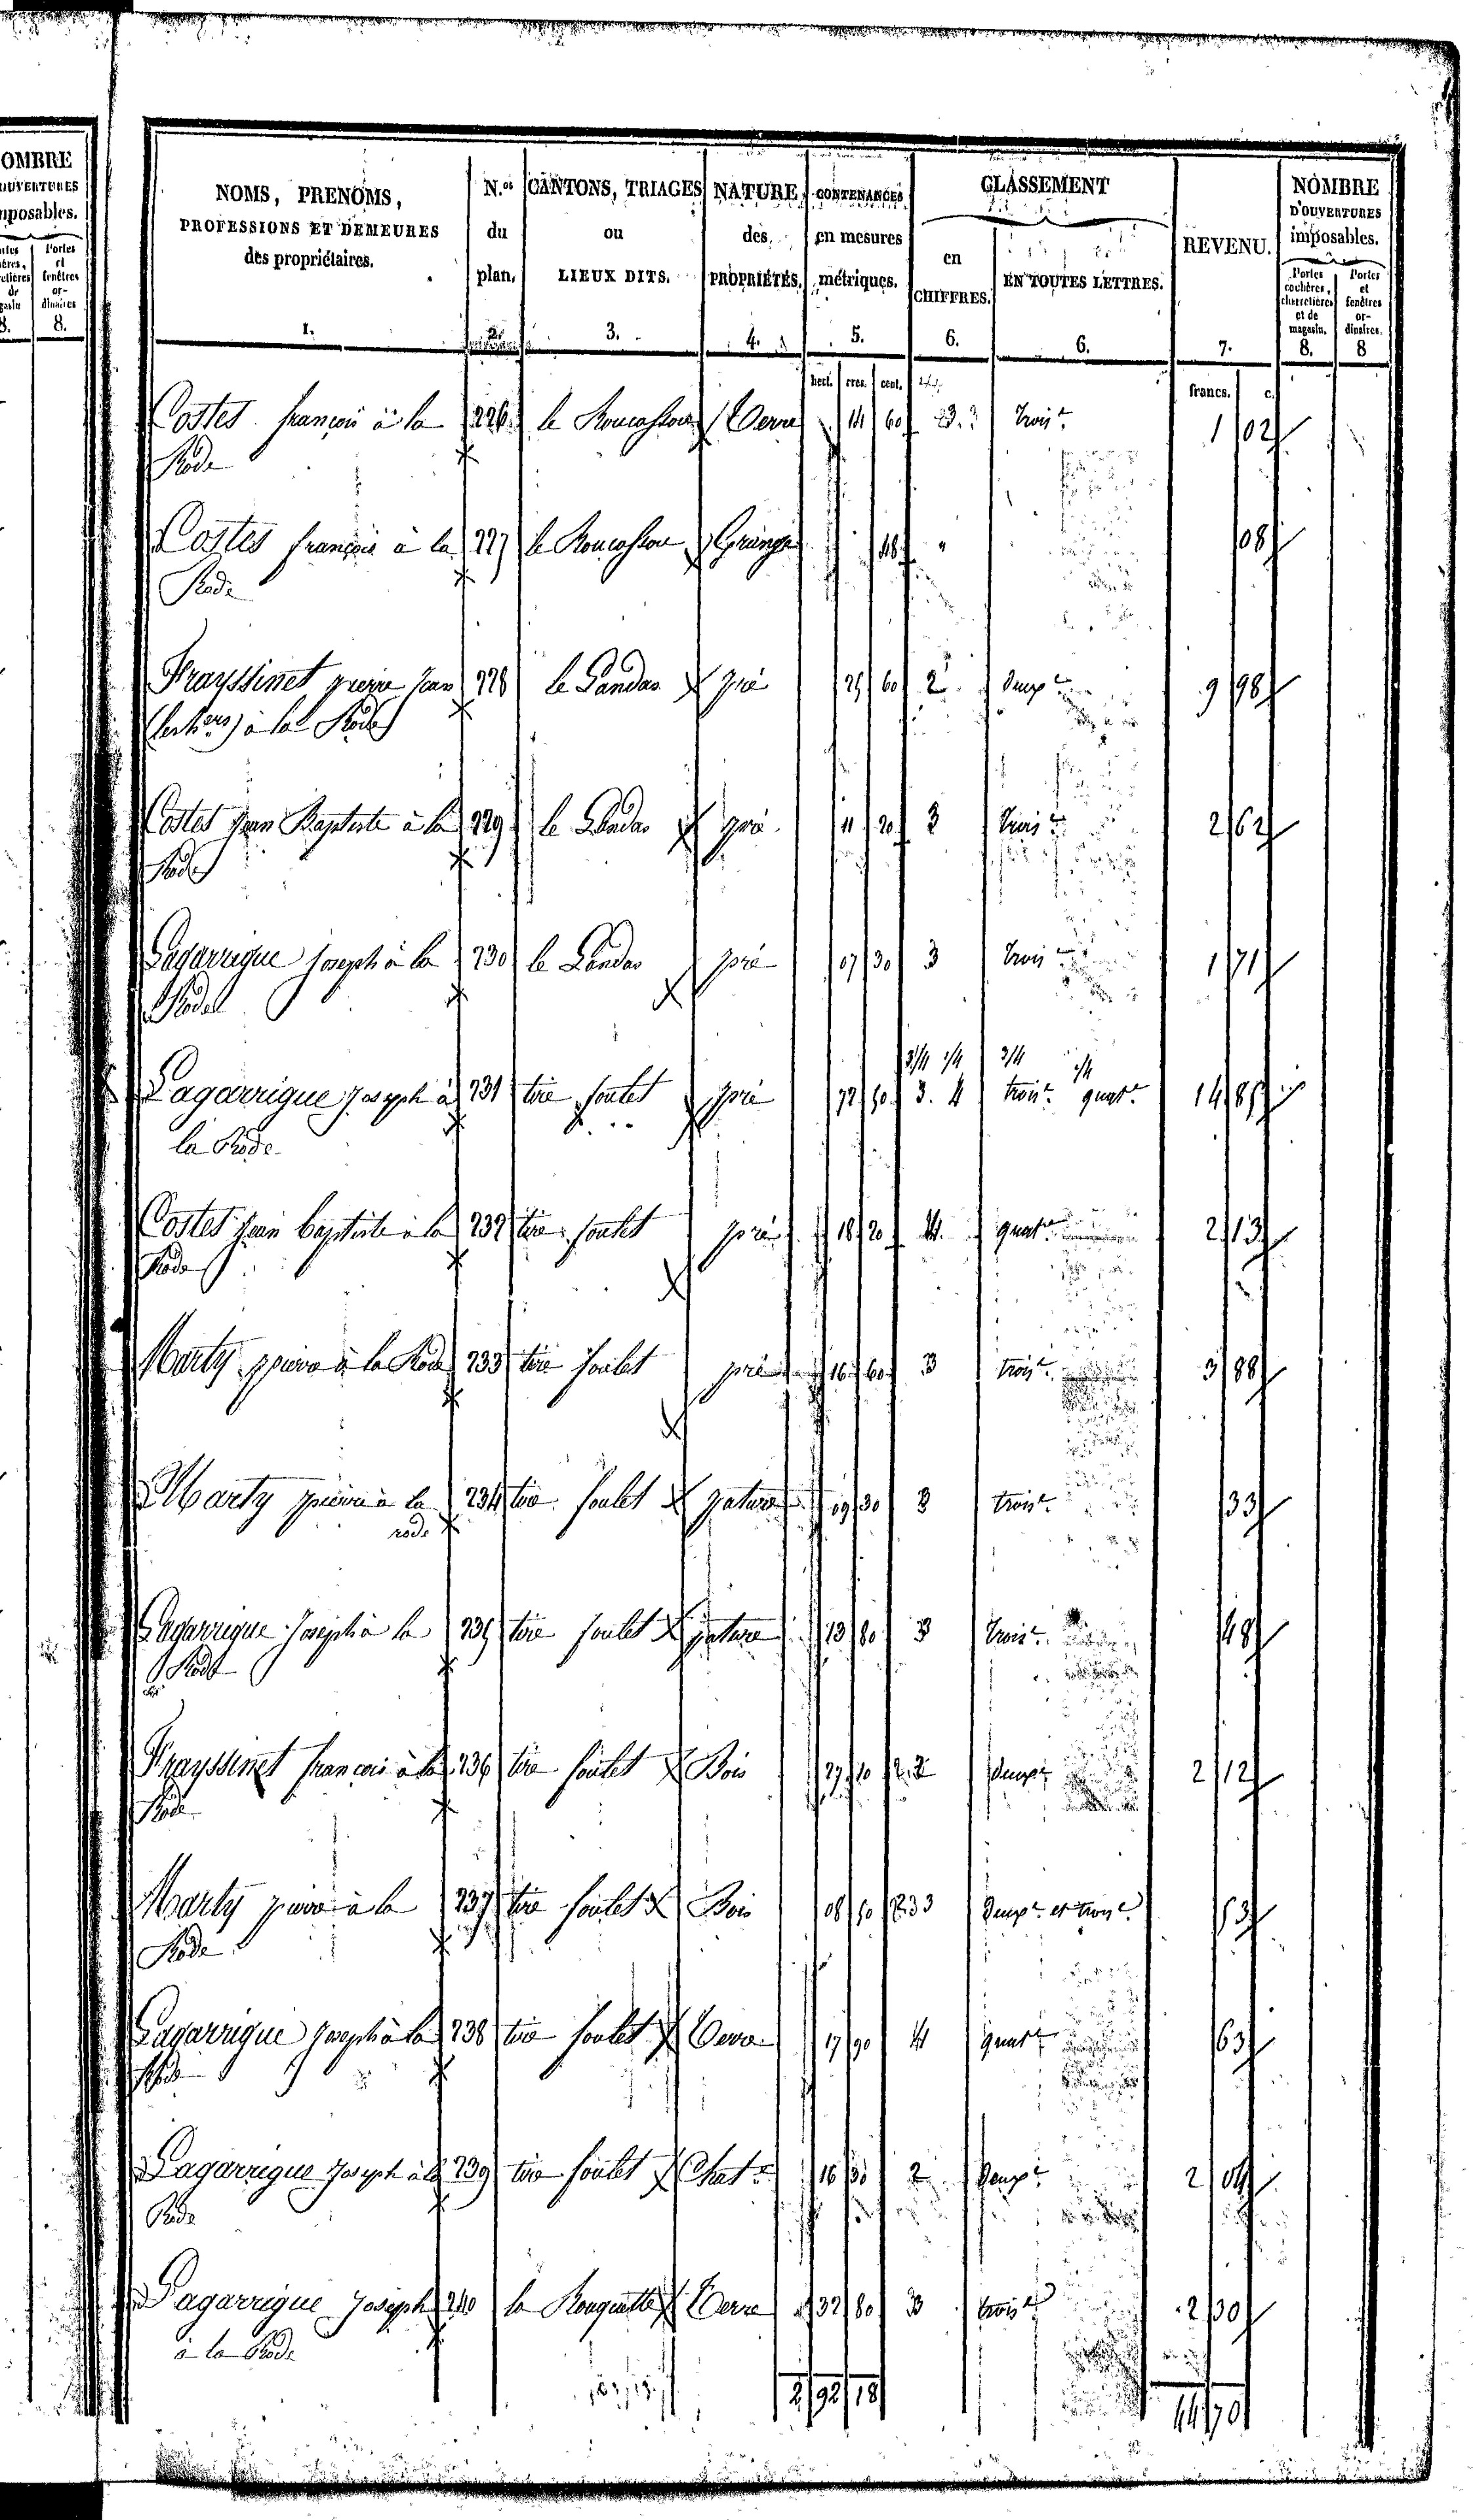 OMBRE
OUVERTURES
mposables.
Portes et fenêtres or-dinaires
8. 8.
NOMS, PRENOMS, PROFESSIONS ET DEMEURES des propriétaires. 1.
N.os du plan. 2.
CANTONS, TRIAGES ou LIEUX DITS. 3.
NATURE des PROPRIÉTÉS. 4.
CONTENANCES en mesures métriques. 5.
CLASSEMENT
en CHIFFRES. 6.
EN TOUTES LETTRES. 6.
REVENU. 7.
NOMBRE D'OUVERTURES imposables.
Portes cochères, charretières et de magasin. 8.
Portes et fenêtres or-dinaires. 8
hect. ares. cent. francs. c.
Costes françois à la 226 Terre 14 60 3 trois.e 1 02
Rode
Costes françois à la 227 Grange 48 " 08
Rode
Frayssinet pierre Jean 228 le Landas pré 25 60 2 deux.e 9 98
à la Rode
Costes Jean Baptiste à la 229 le Landas pré 11 20 3 trois.e 2 62
Rode
Lagarrigue Joseph à la 230 le Landas pré 07 30 3 trois.e 1 71
Rode
3/4 1/4 3/4 1/4
Lagarrigue Joseph à 231 tère foulet pré 72 50 3. 4 trois.e quat.e 14 85
la Rode
Costes Jean baptiste à la 232 tère foulet pré 18 20 4 quat.e 2 13
Rode
Marty pierre à la Rode 233 tère foulet pré 16 60 3 trois.e 3 88
Marty pierre à la 234 tère foulet pature 09 30 3 trois.e 33
rode
Lagarrigue Joseph à la 235 tère foulet pature 13 80 3 trois.e 48
Rode
Frayssinet françois à la 236 tère foulet Bois 27 10 2 deux.e 2 12
Rode
Marty pierre à la 237 tère foulet Bois 08 50 2. 3 deux.e et trois.e 53
Rode
Lagarrigue Joseph à la 238 tère foulet Terre 17 90 4 quat.e 63
Rode
Lagarrigue Joseph à la 239 tère foulet Chat.e 16 30 2 deux.e 2 04
Rode
Lagarrigue Joseph 240 la Rouquette Terre 32 80 3 trois.e 2 30
à la Rode
2 92 18 44 70